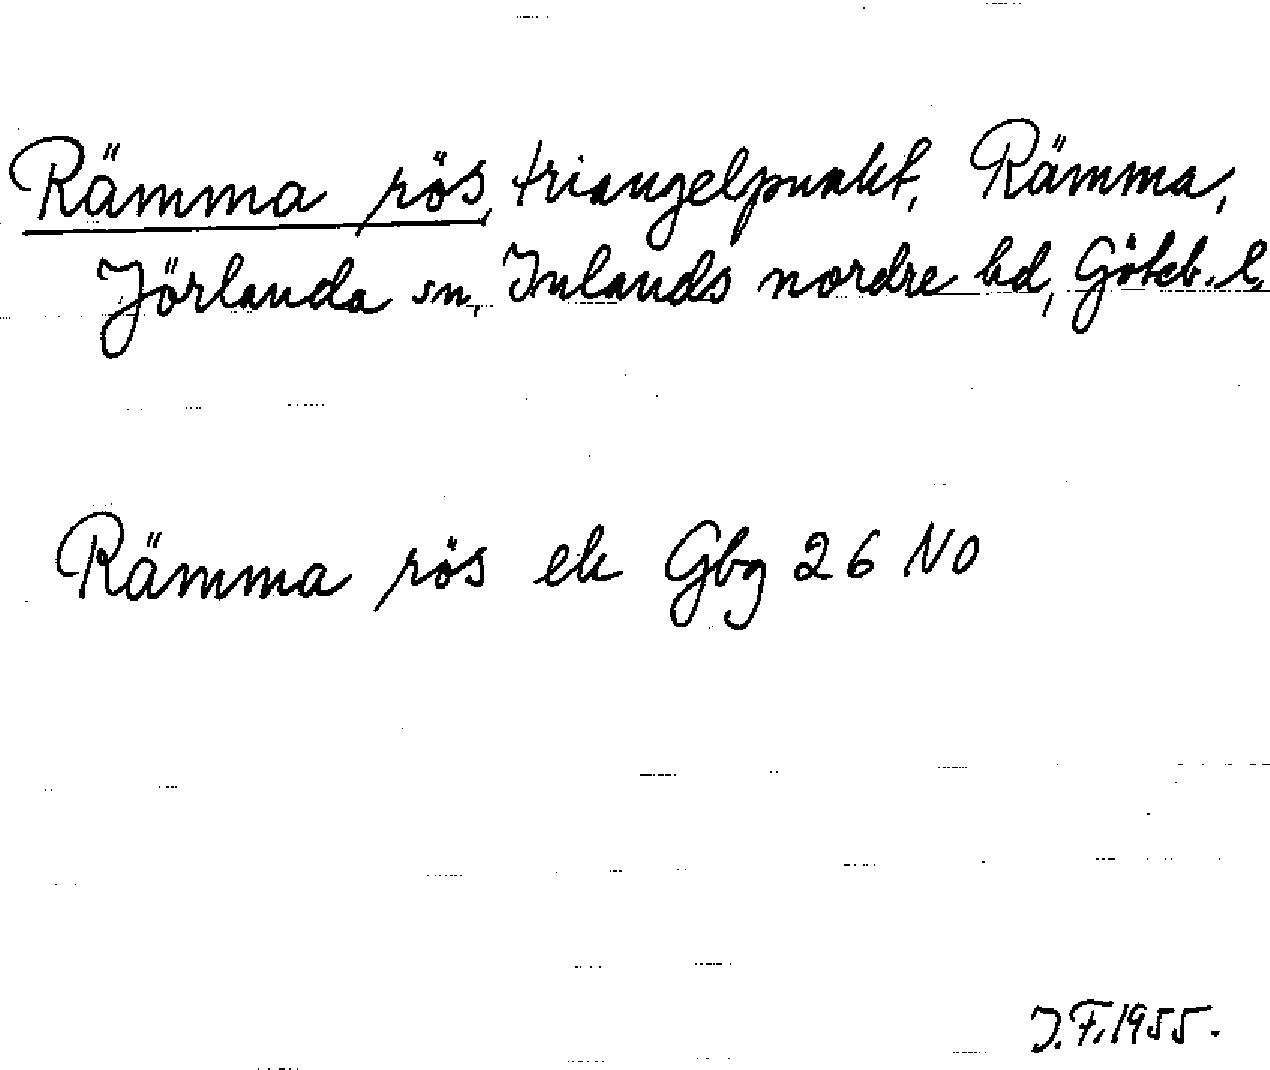 Rämma rös, triangelpunkt, Rämma,
Jörlanda sn, Inlands nordre hd, Göteb. l.
Rämma rös ek Gbg 26 NO
J.F. 1955.